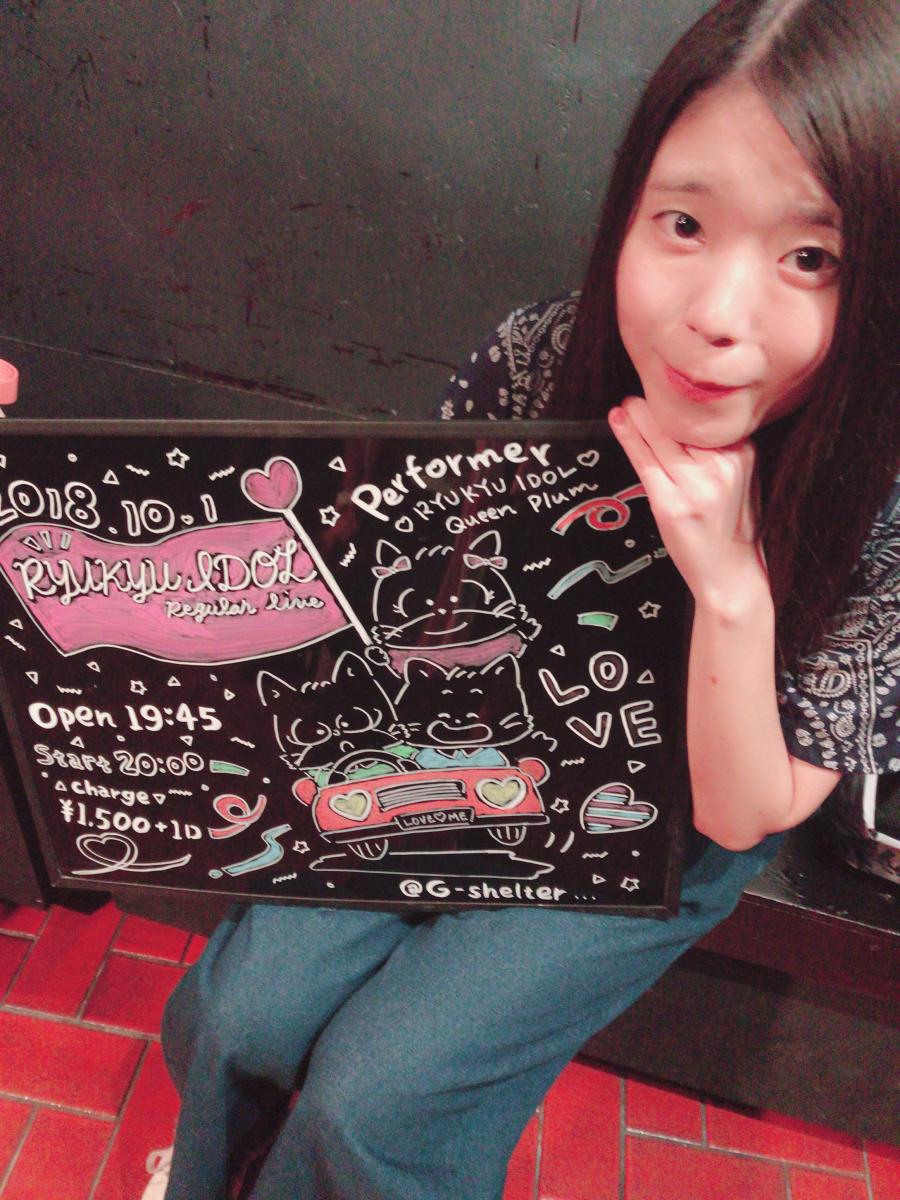 2018.10.1
RYUKYU IDOL
Regular live
Performer
RYUKYU IDOL
Queen Plum
Open 19:45
Start 20:00
charge
¥1.500+1D
LO
VE
LOVE♡ME!
@G-shelter...